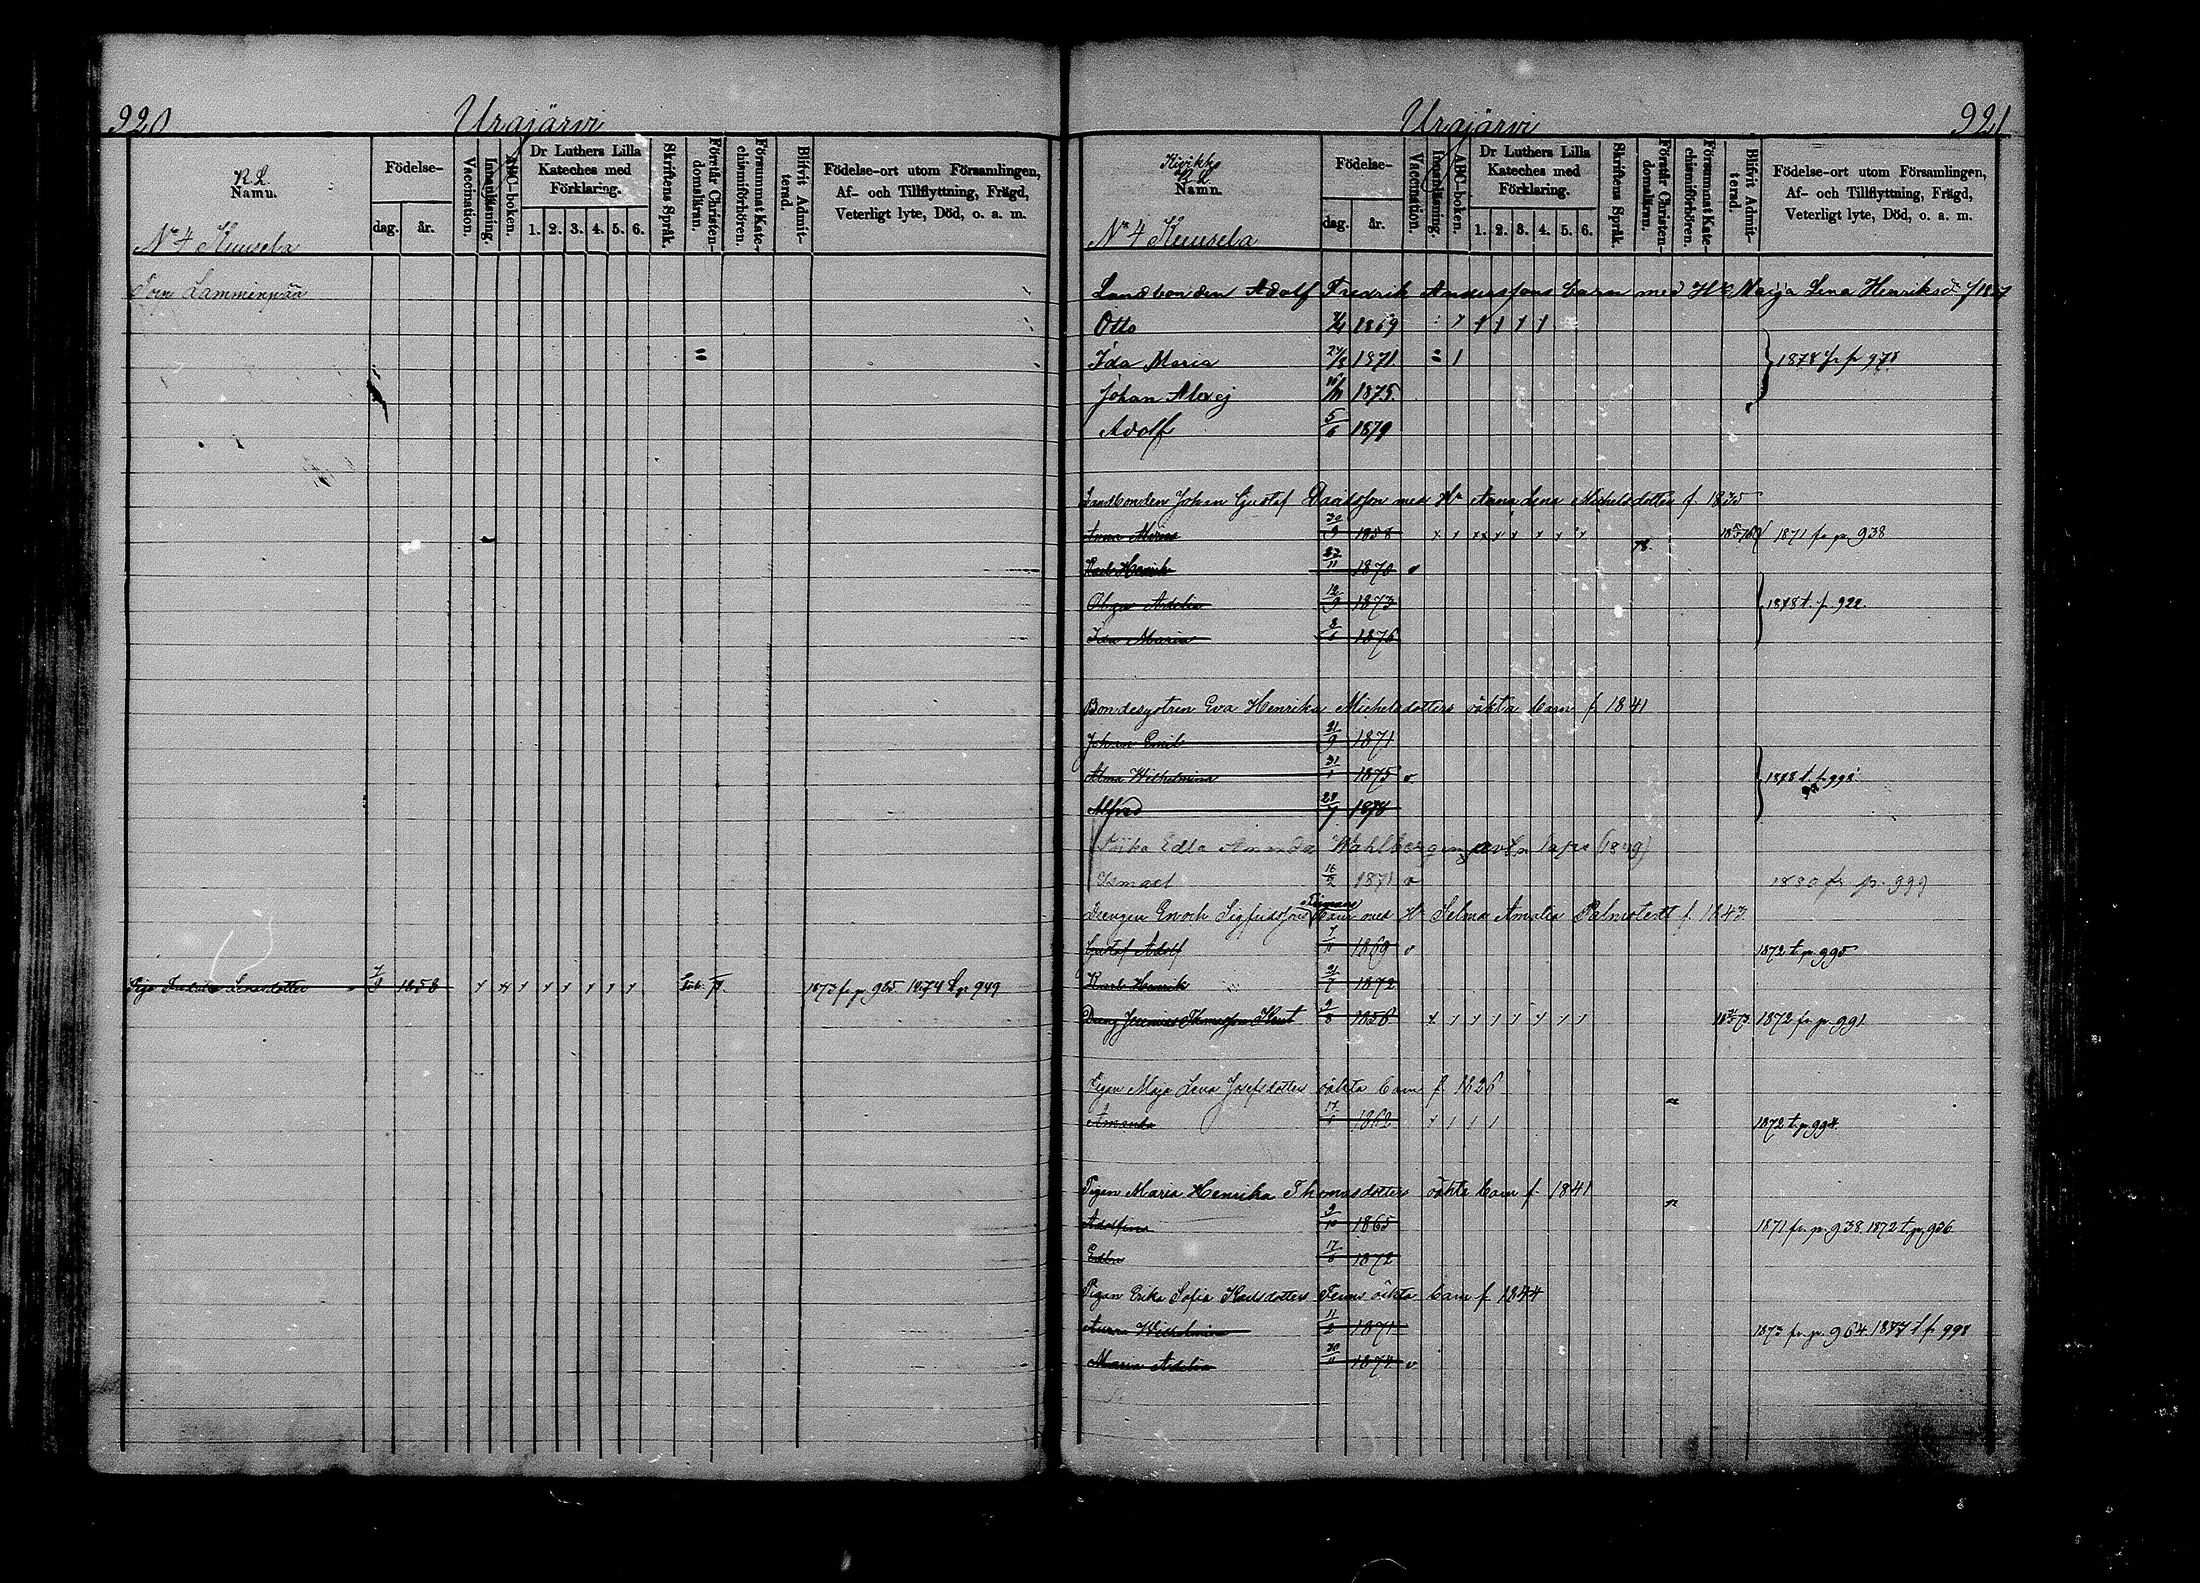 920 Urajärvi
R L
Namn.
Födelse-
dag. år.
Vaccination.
Innanläsning.
ABC-boken.
Dr Luthers Lilla Kateches med Förklaring.
1. 2. 3. 4. 5. 6.
Skriftens Språk.
Förstår Christendomsläran.
Försummat Katechismiförhören.
Blifvit Admitterad.
Födelse-ort utom Församlingen,
Af- och Tillflyttning, Frägd,
Veterligt lyte, Död, o. a. m.
No 4 Kuusela
Lamminpää
1858 1873 fr p. 965 1874 t p 949
Urajärvi 921
R L
Namn.
Födelse-
dag. år.
Vaccination.
Innanläsning.
ABC-boken.
Dr Luthers Lilla Kateches med Förklaring.
1. 2. 3. 4. 5. 6.
Skriftens Språk.
Förstår Christendomsläran.
Försummat Katechismiförhören.
Blifvit Admitterad.
Födelse-ort utom Församlingen,
Af- och Tillflyttning, Frägd,
Veterligt lyte, Död, o. a. m.
No 4 Kuusela
Landbonden Adolf Fredrik Anderssons barn med H. Maija Lena Henriksd
Otto 1869
Ida Maria 24/8 1871 1878 fr p 978
Johan Alexej 1875
Adolf 5/6 1879
Landbonden Johan Gustaf Davidsson med Hu Anna Lena Michelsdotter f. 1835
Anna Maria 1858 1871 fr p. 938
Karl Henrik 27/11 1870
Olga Adelia 12/9 1873 1878 t. p. 922.
Ida Maria 1876
Eva Henrika Michelsdotters oäkta barn f 1841
Johan Emil 21/9 1871
Alma Wilhelmina 31/1 1875
Alfred 1878
Piika Edla Amanda Wahlbergin lapsi (1849)
Ismael 1871 1880 fr p. 999
Drengen Enoch Sigfridssons barn med Hu Selma Amalia Palmstedt f. 1843
Gustaf Adolf 1869 1872 t p. 995
Karl Henrik 21/7 1872
Dreng Jeremias 1856 1872 fr p. 991
Pigan Maja Lena Josefsdotters oäkta barn f 1826
Amanda 1862 1872 t. p. 994
Pigan Maria Henrika Thomasdotters oäkta barn f. 1841
Adolfina 9/10 1865 1871 fr. p. 938. 1872 t. p. 936
Edla 1872
Pigan Erika Sofia Karlsdotters oäkta barn f 1844
Wilhelmina 11/2 1871 1873 fr. p. 964. 1877 t p. 998
Maria Adelia 1874